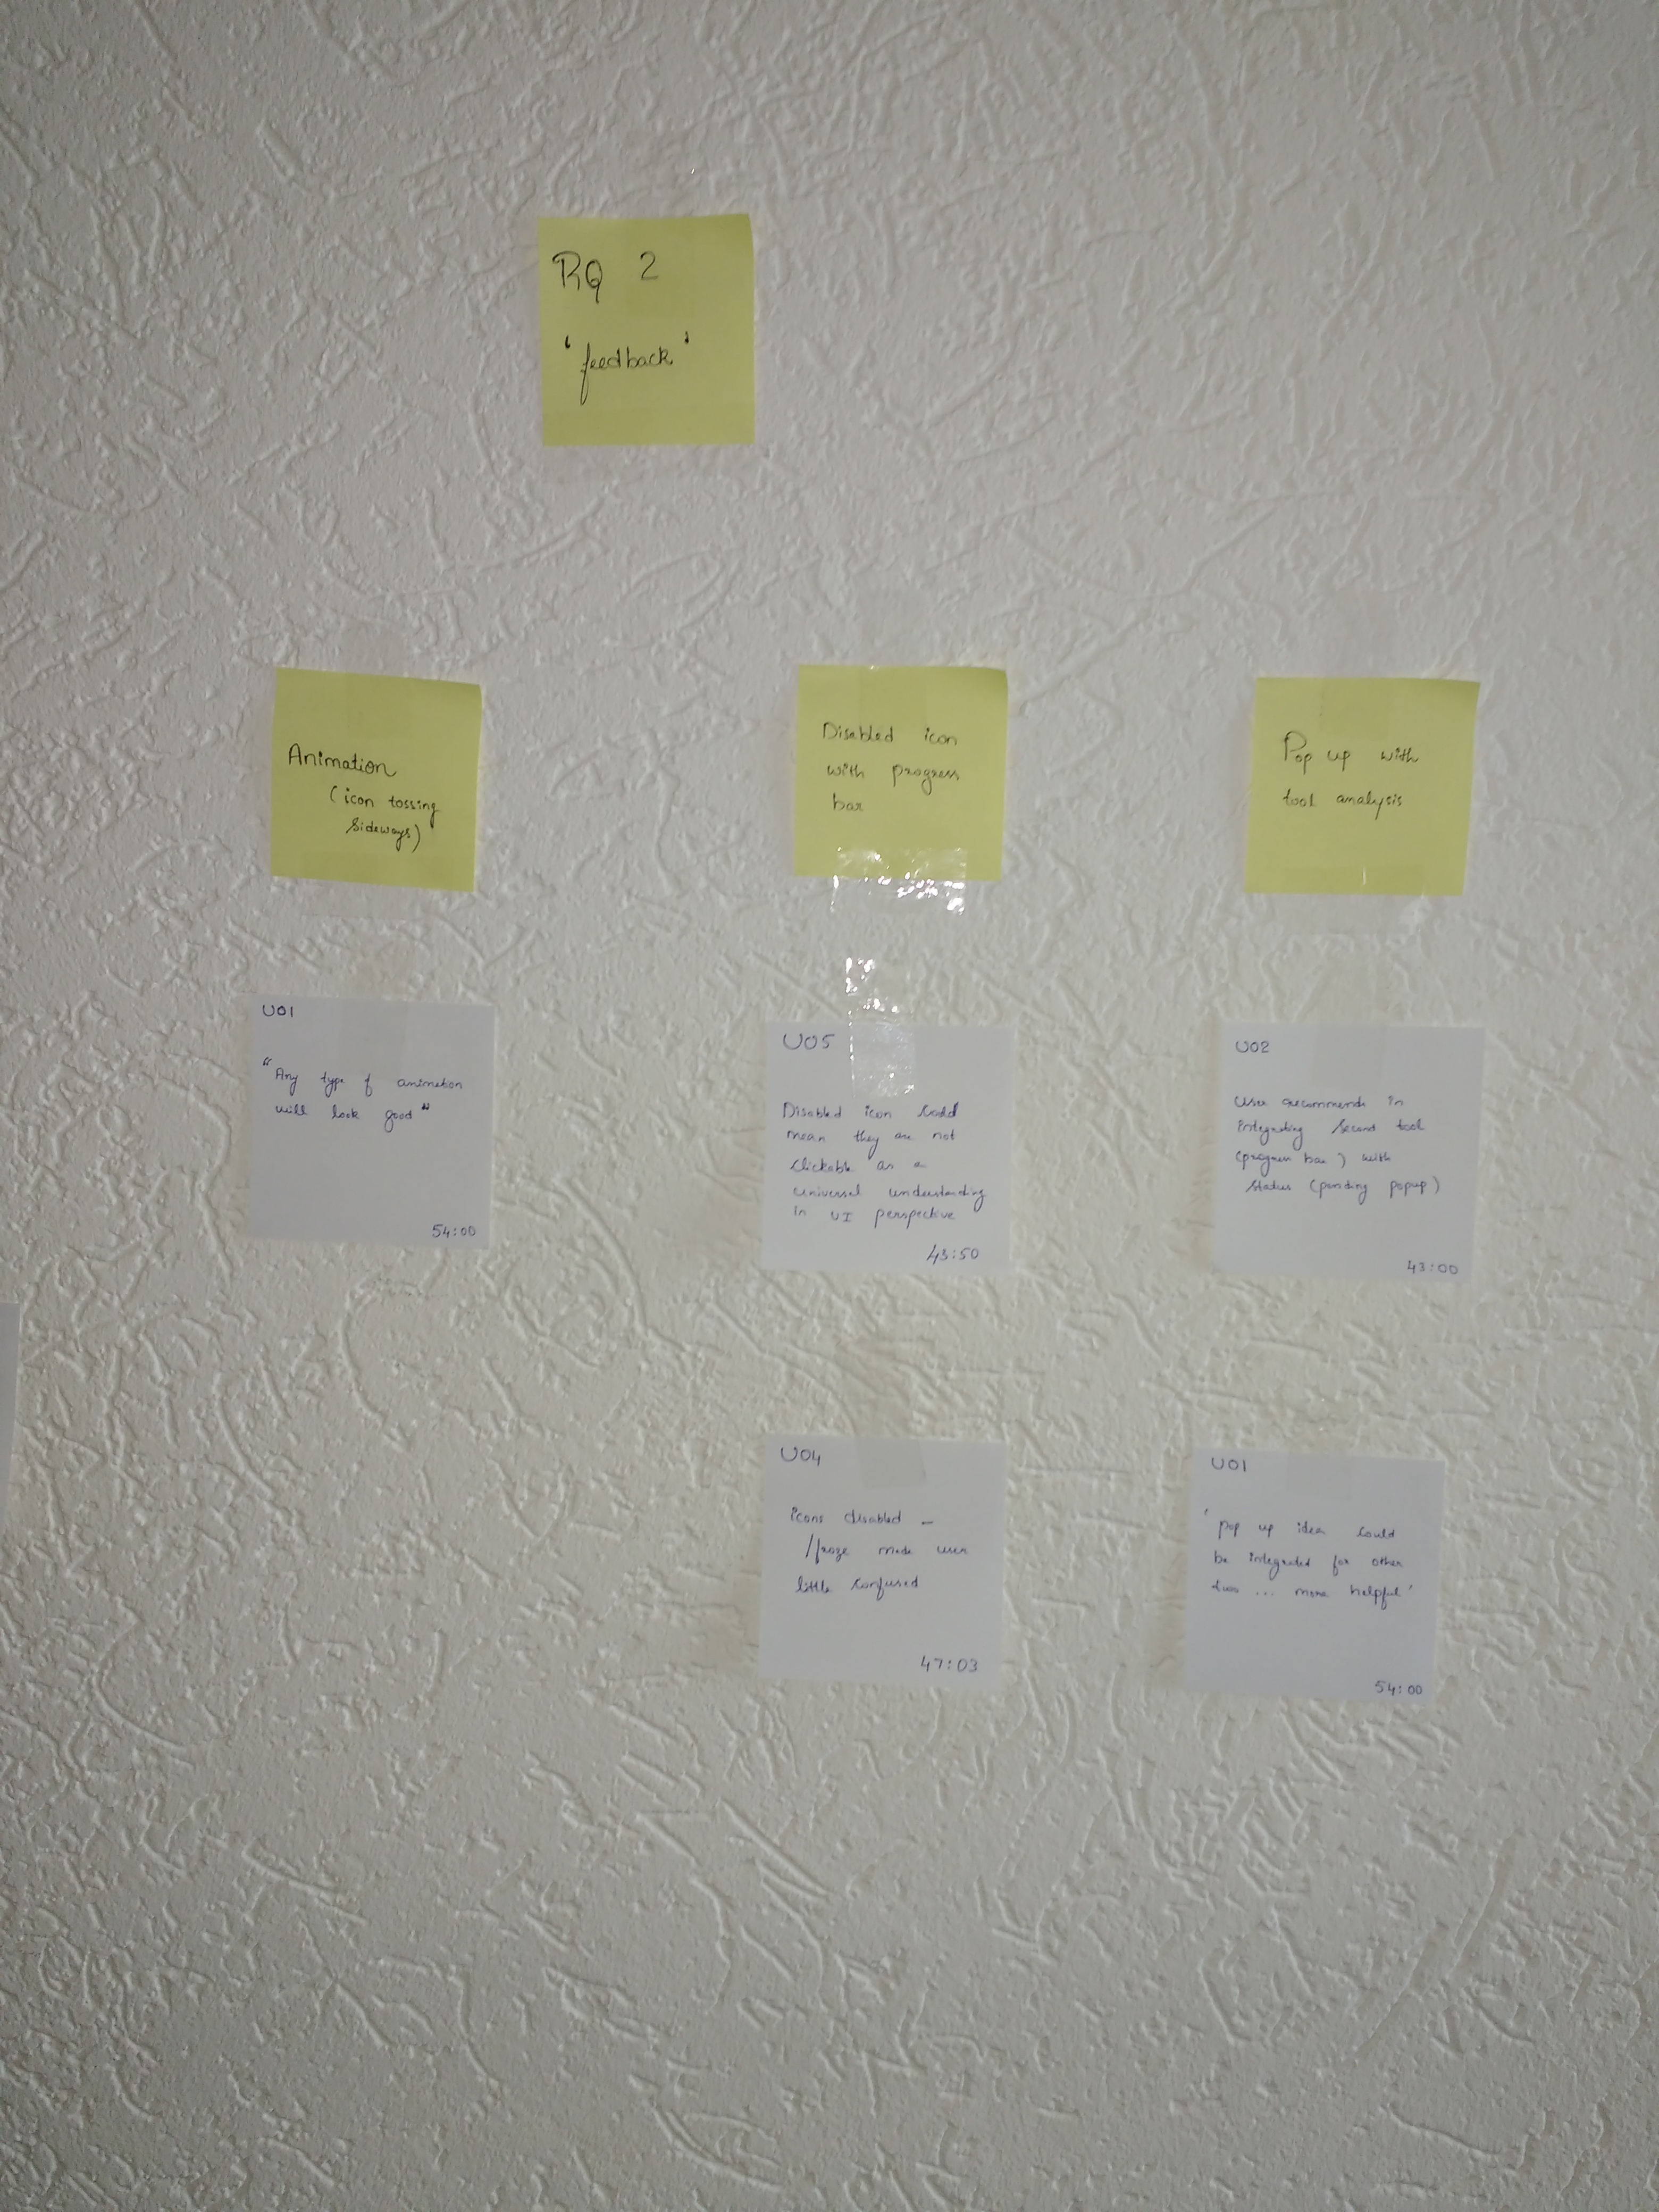 RQ 2
'feedback'
Animation
(icon tossing
sideways)
Disabled icon
with progress
bar
Pop up with
tool analysis
U01
"Any type of animation
will look good"
54:00
U05
Disabled icon could
mean they are not
clickable as a
universal understanding
in UI perspective
43:50
U02
User recommends in
integrating second tool
(progress bar) with
status (pending popup)
43:00
U04
icons disabled -
/froze made user
little confused
47:03
U01
'pop up idea could
be integrated for other
two ... more helpful'
54:00